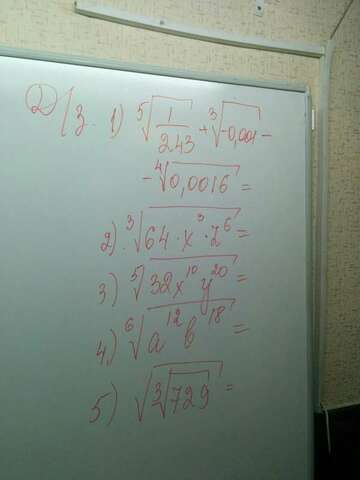 Д/з. 1) ⁵√(1/243) + ³√(-0,001) -
- ⁴√(0,0016) =
2) ³√(64 · x³ · z⁶) =
3) ⁵√(32x¹⁰y²⁰) =
4) ⁶√(a¹²b¹⁸) =
5) √(³√(729)) =